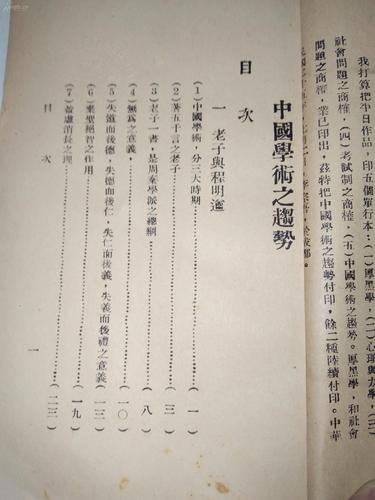 我打算把平日作品，印五個單行本：(一)厚黑學，(二)心理與力學，(三)
社會問題之商榷，(四)考試制之商榷，(五)中國學術之趨勢。厚黑學，和社會
問題之商榷，業已印出，茲特把中國學術之趨勢付印，餘二種陸續付印。中華
中國學術之趨勢
目 次
一 老子與程明道
(1)中國學術，分三大時期………(一)
(2)著五千言之老子………(三)
(3)老子一書，是周秦學派之總綱………(八)
(4)無爲之意義，………(一〇)
(5)失道而後德，失德而後仁，失仁而後義，失義而後禮之意義(一三)
(6)棄聖絕智之作用………(一九)
(7)盈虛消長之理………(二三)
目 次
一